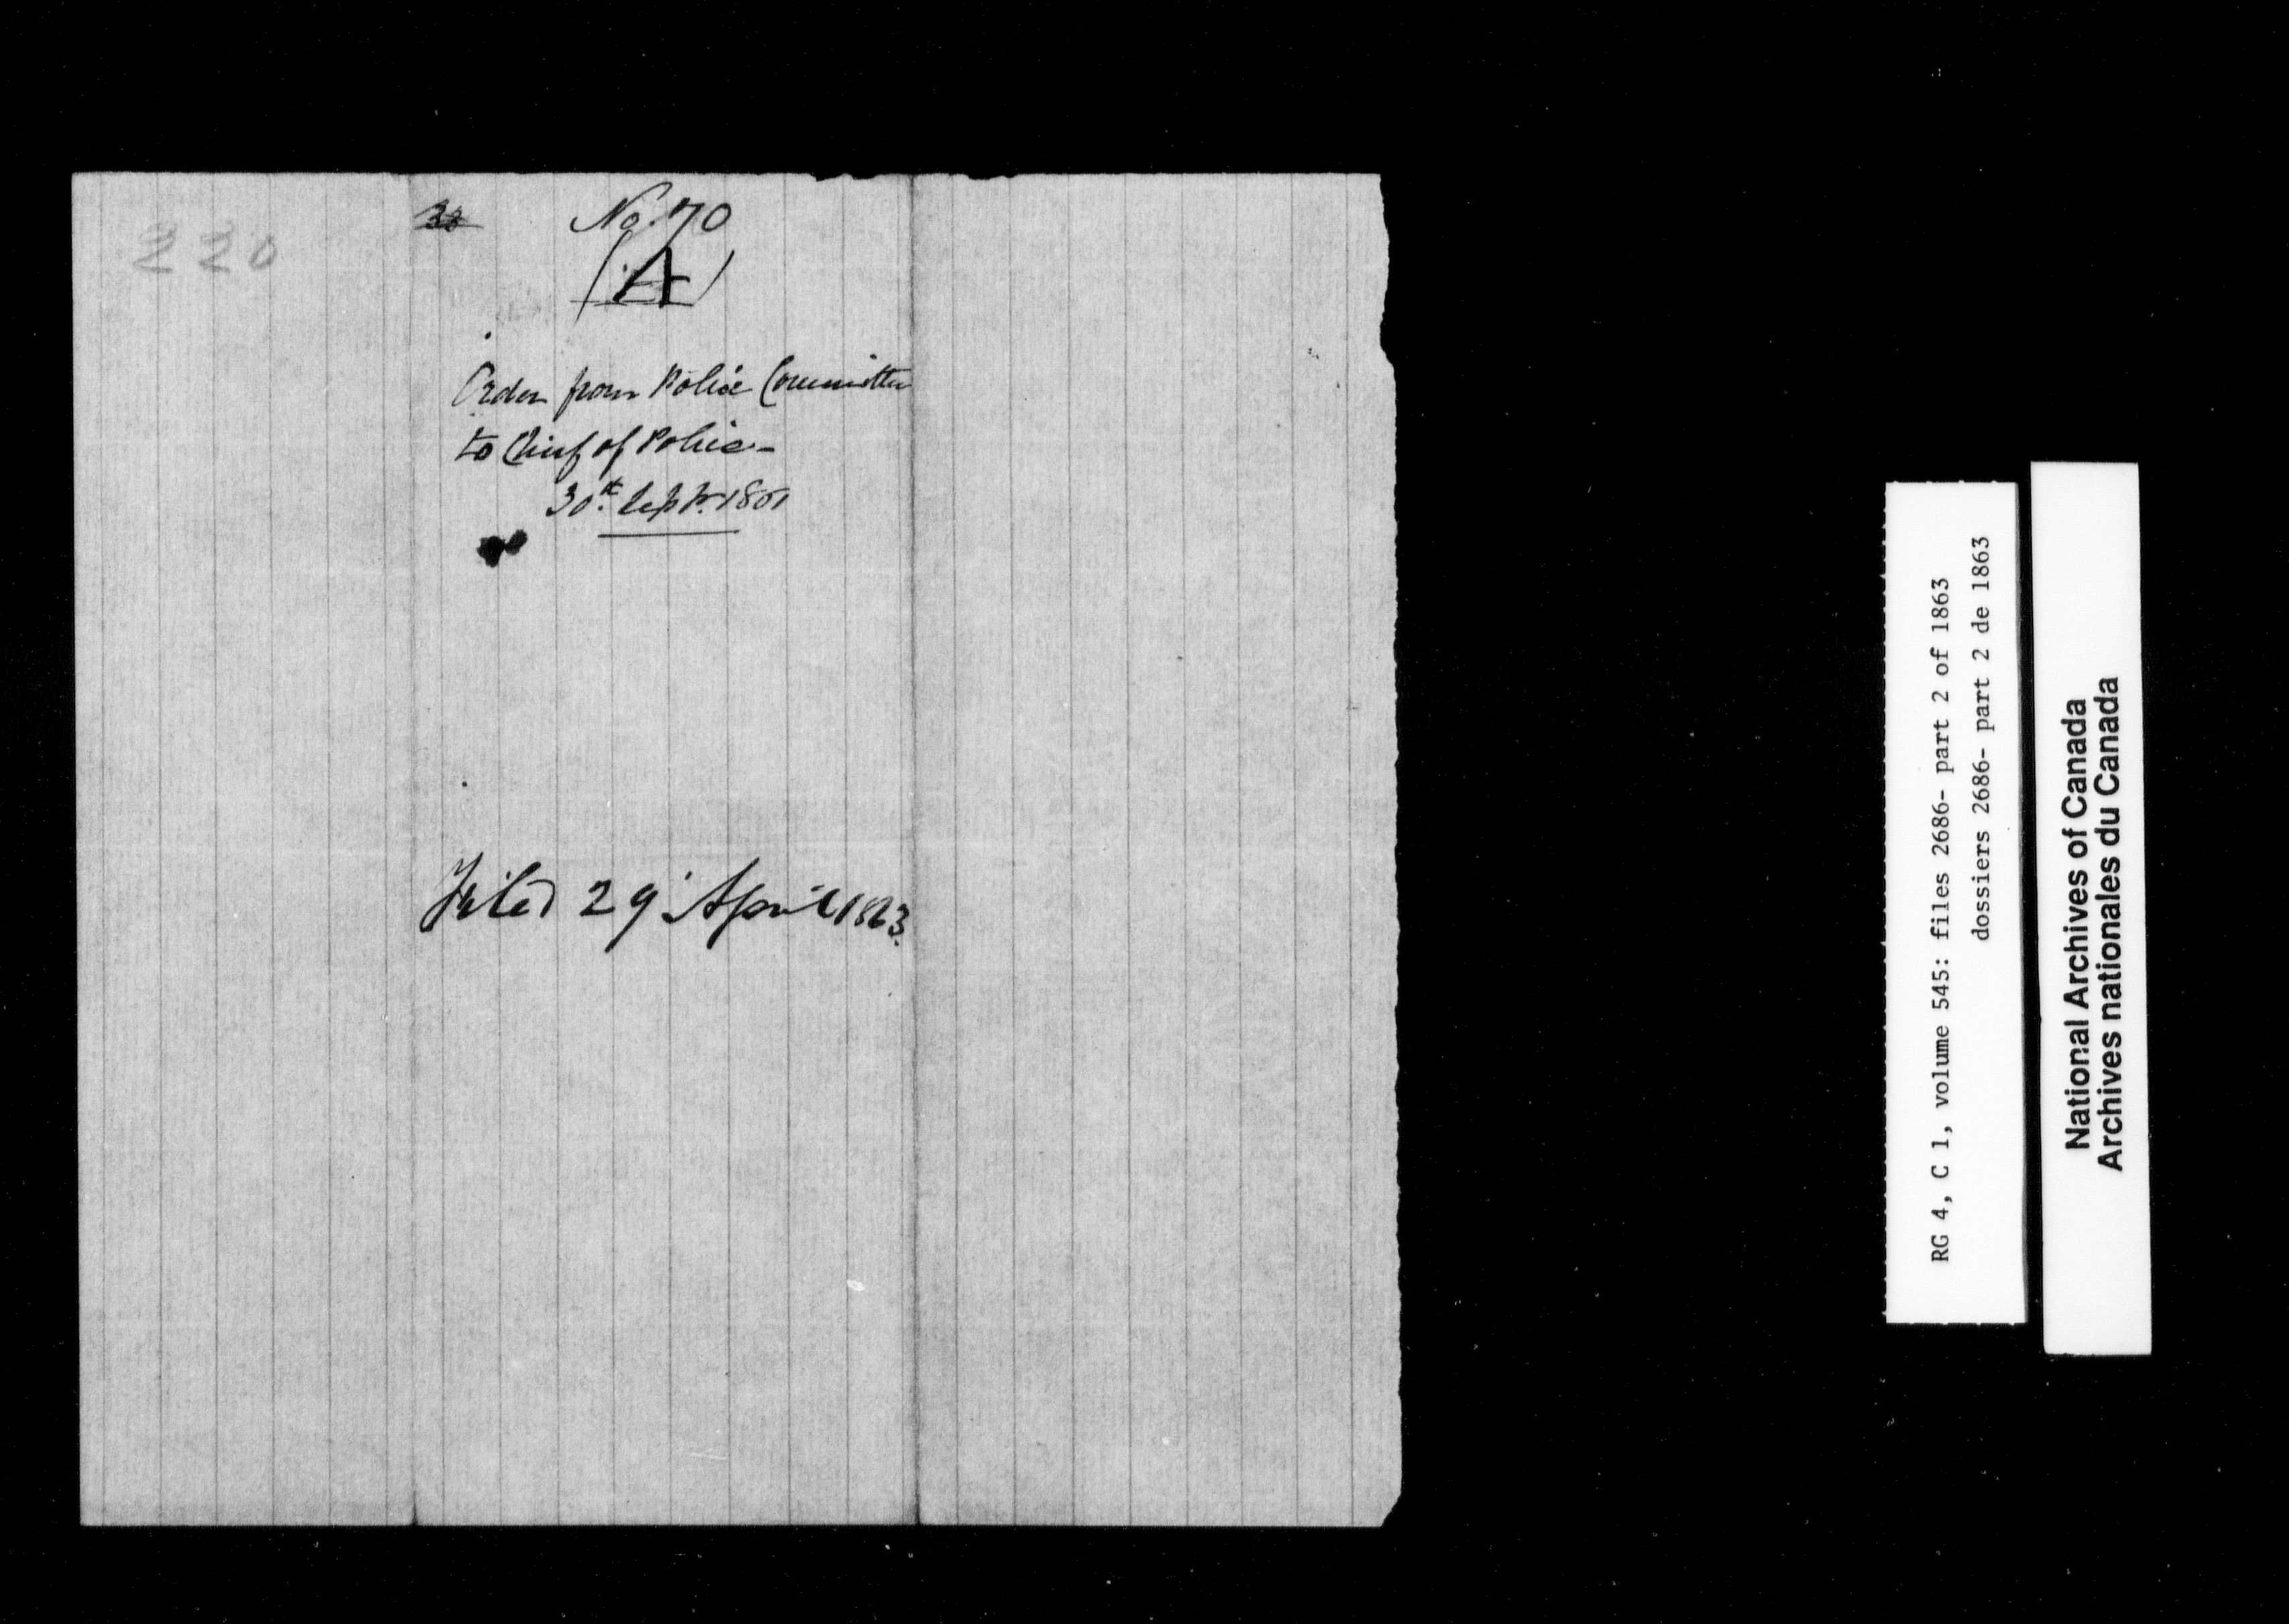 220
No. 70
(A)
Order from Police Committee
to Chief of Police -
30th Sept. 1861
Filed 29 April 1863.
RG 4, C 1, volume 545: files 2686- part 2 of 1863
dossiers 2686- part 2 de 1863
National Archives of Canada
Archives nationales du Canada